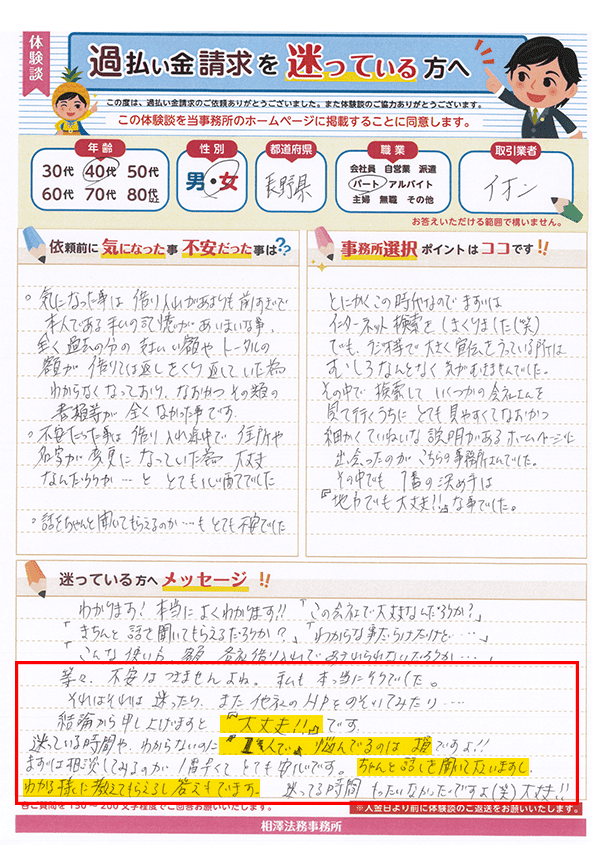 体験談
過払い金請求を迷っている方へ
この度は、過払い金請求のご依頼ありがとうございました。また体験談のご協力ありがとうございます。
この体験談を当事務所のホームページに掲載することに同意します。
年齢
30代 40代 50代
60代 70代 80代以上
性別
男・女
都道府県
長野県
職業
会社員 自営業 派遣
パート アルバイト
主婦 無職 その他
取引業者
イオン
お答えいただける範囲で構いません。
依頼前に気になった事 不安だった事は??
。気になった事は 借り入れがあまりも前すぎて
本人である私の記憶があいまいな事、
全く過去の分の支払い額やトータルの
額が 借りては返しをくり返していた為
わからなくなっており、なおかつその類の
書類等が 全くなかった事です
。不安だった事は 借り入れ途中で 住所や
名字が変更になっていた為 大丈夫
なんだろうか…と とても心配でした
。話をちゃんと聞いてもらえるのか…も とても不安でした
事務所選択ポイントはココです!!
とにかくこの時代なので まずは
インターネット検索をしまくりました(笑)
でも、ラジオ等で大きく宣伝をうっている所は
むしろなんとなく気がむきませんでした。
その中で 検索して いくつかの会社さんを
見て行くうちに とても見やすくてなおかつ
細かくていねいな説明があるホームページに
出会ったのが こちらの事務所さんでした。
その中でも 1番の決め手は
『地方でも大丈夫!!』な事でした。
迷っている方へメッセージ!!
わかります! 本当によくわかります!! 「この会社で大丈夫なんだろうか?」
「きちんと話を聞いてもらえるだろうか?」「わからない事だらけだけど……」
「こんな使い方、 各社借り入れで あきれられないだろうか……」
等々、不安はつきませんよね。私も本当にそうでした。
それはそれは迷ったり、また他社のHPをのぞいてみたり……
結論から申し上げますと『大丈夫!!』です。
迷っている時間や、わからないのに『1人で』悩んでるのは 損ですよ!!
まずは相談してみるのが 1番早くて とても安心です。 ちゃんと話しを聞いて下さいますし、
わかる様に教えてもらえるし答えもでます。 迷ってる時間 もったいなかったですよ(笑)大丈夫!!
各ご質問を150~200文字程度でご回答お願いいたします。
※入金日より前に体験談のご返送をお願いいたします。
相澤法務事務所